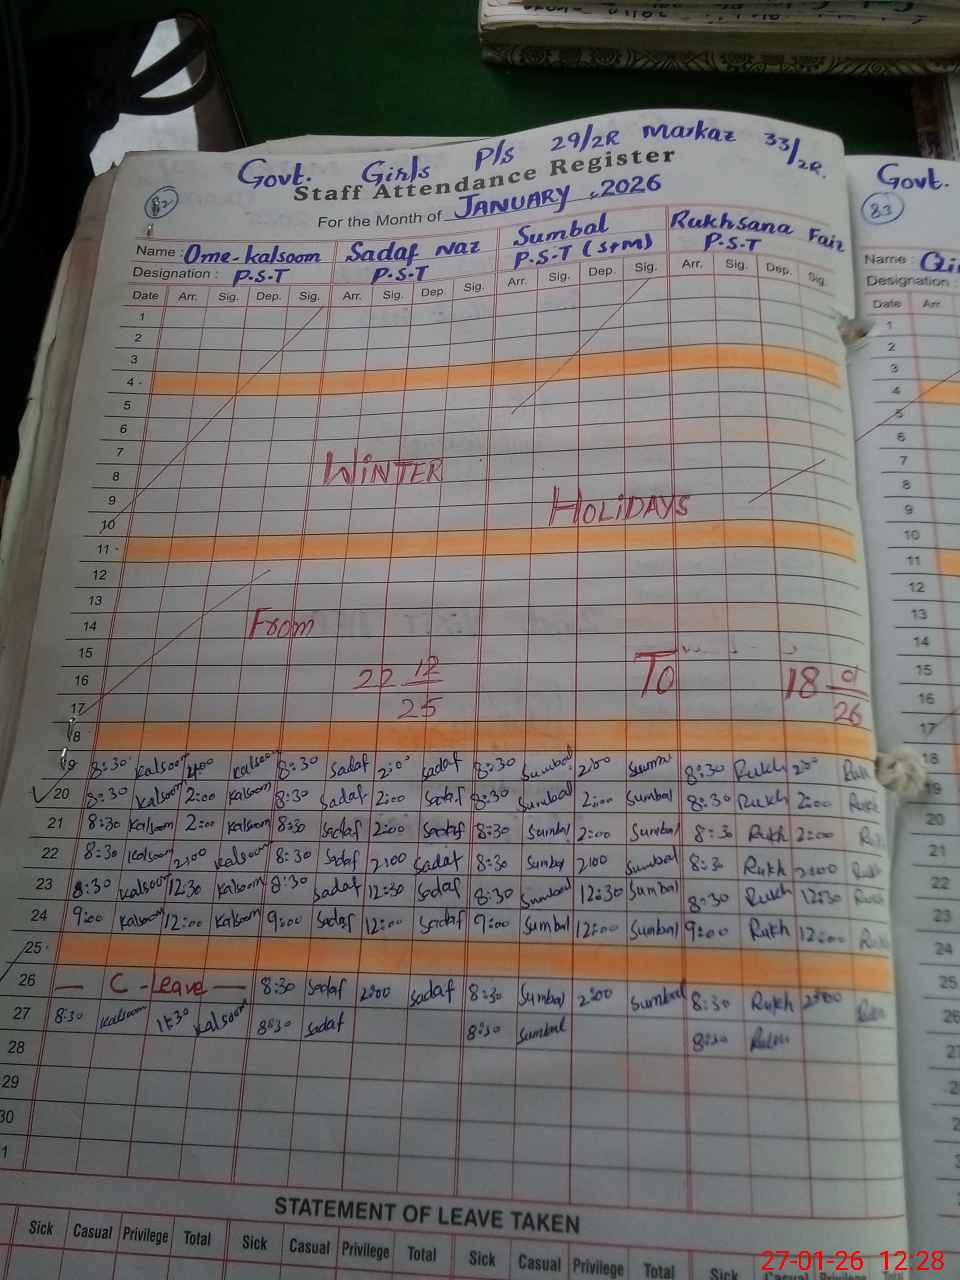 Govt. Girls P/S 29/2R Markaz 33/2R.
Staff Attendance Register
82
For the Month of JANUARY, 2026
Name : Ome-kalsoom Sadaf Naz Sumbal Rukhsana Faiz
Designation : P.S.T P.S.T P.S.T (S+M) P.S.T
Date Arr. Sig. Dep. Sig. Arr. Sig. Dep. Sig. Arr. Sig. Dep. Sig. Arr. Sig. Dep. Sig.
1
2
3
4
5
6
7
8 WINTER
9 HOLIDAYS
10
11
12
13
14 From
15
16 22 12/25 To 18 01/26
17
18
19 8:30 Kalsoom 2:00 Kalsoom 8:30 Sadaf 2:00 Sadaf 8:30 Sumbal 2:00 Sumbal 8:30 Rukh 2:00 Rukh
20 8:30 Kalsoom 2:00 Kalsoom 8:30 Sadaf 2:00 Sadaf 8:30 Sumbal 2:00 Sumbal 8:30 Rukh 2:00 Rukh
21 8:30 Kalsoom 2:00 Kalsoom 8:30 Sadaf 2:00 Sadaf 8:30 Sumbal 2:00 Sumbal 8:30 Rukh 2:00 Rukh
22 8:30 Kalsoom 2:00 Kalsoom 8:30 Sadaf 2:00 Sadaf 8:30 Sumbal 2:00 Sumbal 8:30 Rukh 2:00 Rukh
23 8:30 Kalsoom 12:30 Kalsoom 8:30 Sadaf 12:30 Sadaf 8:30 Sumbal 12:30 Sumbal 8:30 Rukh 12:30 Rukh
24 9:00 Kalsoom 12:00 Kalsoom 9:00 Sadaf 12:00 Sadaf 9:00 Sumbal 12:00 Sumbal 9:00 Rukh 12:00 Rukh
25
26 — C - Leave — 8:30 Sadaf 2:00 Sadaf 8:30 Sumbal 2:00 Sumbal 8:30 Rukh 2:00 Rukh
27 8:30 Kalsoom 11:30 Kalsoom 8:30 Sadaf 8:30 Sumbal 8:30 Rukh
28
29
30
1
STATEMENT OF LEAVE TAKEN
Sick Casual Privilege Total Sick Casual Privilege Total Sick Casual Privilege Total Sick Casual Privilege
Govt.
83
Name :
Designation :
Date Arr.
1
2
3
4
5
6
7
8
9
10
11
12
13
14
15
16
17
18
19
20
21
22
23
24
25
26
27-01-26 12:28